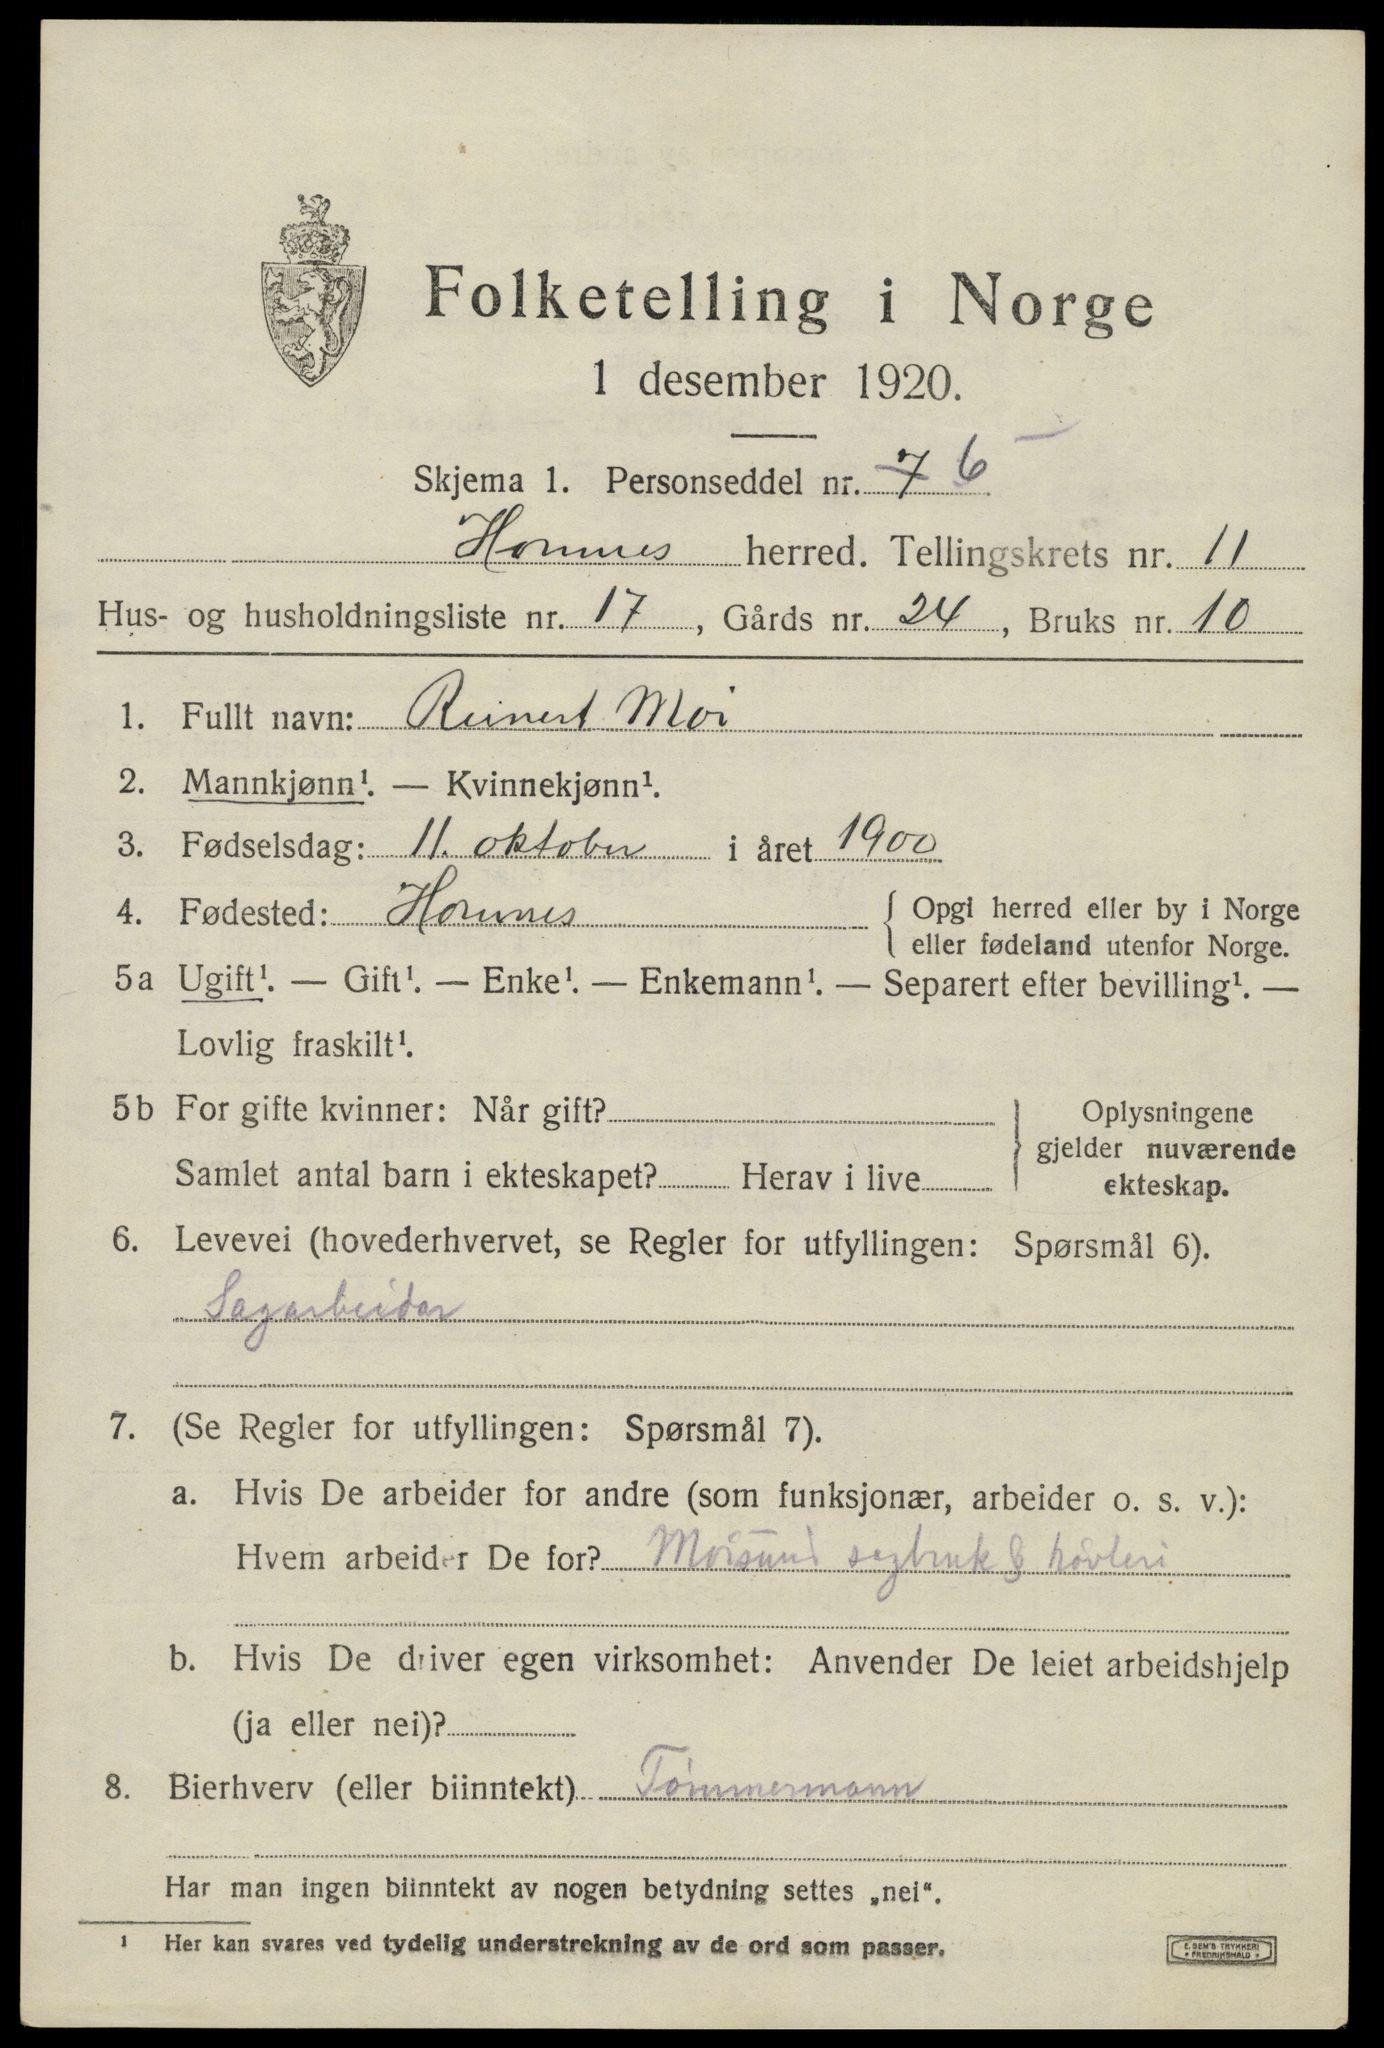 Folketelling i Norge
1 desember 1920.
Skjema 1. Personseddel nr. 7 6
Hornnes herred. Tellingskrets nr. 11
Hus- og husholdningsliste nr. 17, Gårds nr. 24, Bruks nr. 10
1. Fullt navn: Reinert Moi
2. Mannkjønn¹. — Kvinnekjønn¹.
3. Fødselsdag: 11. oktober i året 1900
4. Fødested: Hornnes { Opgi herred eller by i Norge
eller fødeland utenfor Norge.
5a Ugift¹. — Gift¹. — Enke¹. — Enkemann¹. — Separert efter bevilling¹. —
Lovlig fraskilt¹.
5b For gifte kvinner: Når gift? } Oplysningene
gjelder nuværende
Samlet antal barn i ekteskapet? Herav i live ekteskap.
6. Levevei (hovederhvervet, se Regler for utfyllingen: Spørsmål 6).
Sagarbeidar
7. (Se Regler for utfyllingen: Spørsmål 7).
a. Hvis De arbeider for andre (som funksjonær, arbeider o. s. v.):
Hvem arbeider De for? Moisund sagbruk & høvleri
b. Hvis De driver egen virksomhet: Anvender De leiet arbeidshjelp
(ja eller nei)?
8. Bierhverv (eller biinntekt) Tømmermann
Har man ingen biinntekt av nogen betydning settes „nei“.
¹ Her kan svares ved tydelig understrekning av de ord som passer.
E. SEM'S TRYKKERI
FREDRIKSHALD